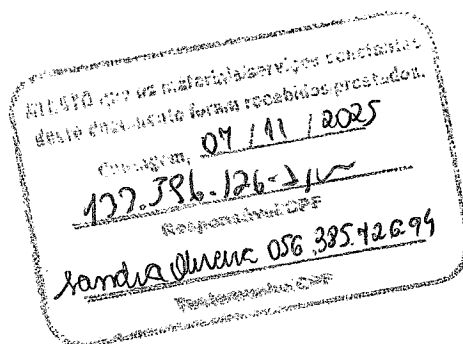 ATESTO que os materiais/serviços constantes
deste documento foram recebidos prestados.
Contagem, 07 / 11 / 2025
Responsável CPF
Sandra Oliveira 056.385.726.94
Testemunha CPF